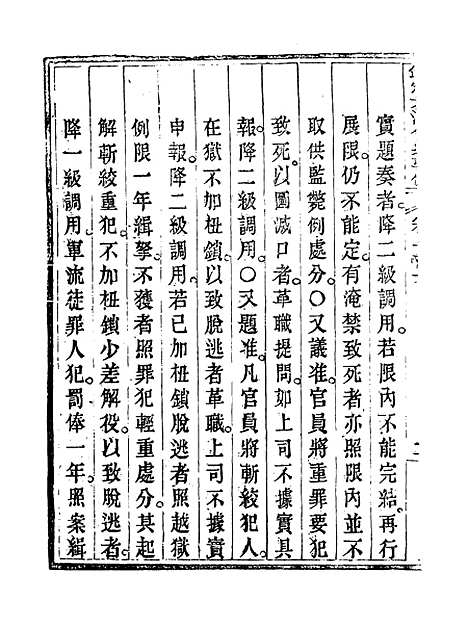 實題奏者降二級調用。若限內不能完結。再行
展限。仍不能定。有淹禁致死者亦照限內並不
取供監斃例處分。○又議准。官員將重罪要犯
致死。以圖滅口者革職提問。如上司不據實具
報。降二級調用。○又題准。凡官員將斬絞犯人。
在獄不加杻鎖。以致脫逃者革職。上司不據實
申報。降二級調用。若已加杻鎖脫逃者照越獄
例限一年緝拏。不獲者照罪犯輕重處分。其起
解斬絞重犯。不加杻鎖少差解役。以致脫逃者。
降一級調用。軍流徒罪人犯。罰俸一年。照案緝